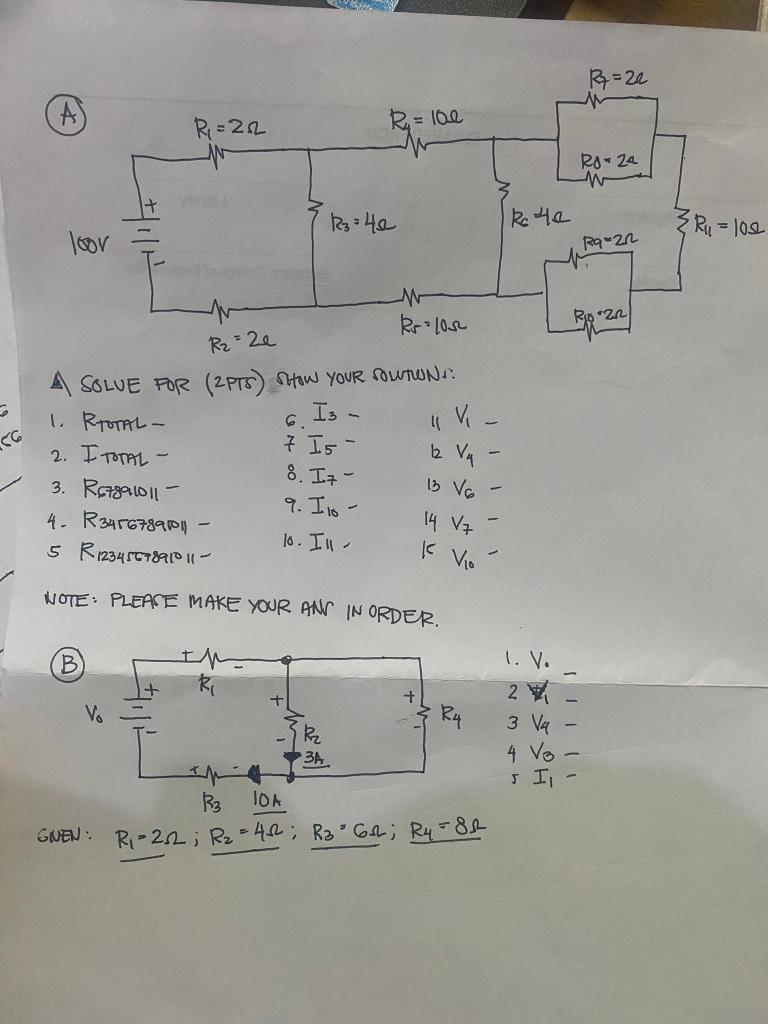 A
R7=2Ω
R1=2Ω
R4=10Ω
R8=2Ω
+
100V
-
R3=4Ω
R6=4Ω
R11=10Ω
R9=2Ω
R10=2Ω
R2=2Ω
R5=10Ω
A SOLVE FOR (2PTS) SHOW YOUR SOLUTIONS:
1. RTOTAL -
2. ITOTAL -
3. R67891011 -
4. R34567891011 -
5 R1234567891011 -
6. I3 -
7 I5 -
8. I7 -
9. I10 -
10. I11 -
11 V1 -
12 V4 -
13 V6 -
14 V7 -
15 V10 -
NOTE: PLEASE MAKE YOUR ANS IN ORDER.
B
+ -
R1
+
V0
-
+
R2
-
3A
+
R4
-
+ -
R3 10A
1. V0 -
2 V1 -
3 V4 -
4 V3 -
5 I1 -
GIVEN: R1=2Ω; R2=4Ω; R3=6Ω; R4=8Ω